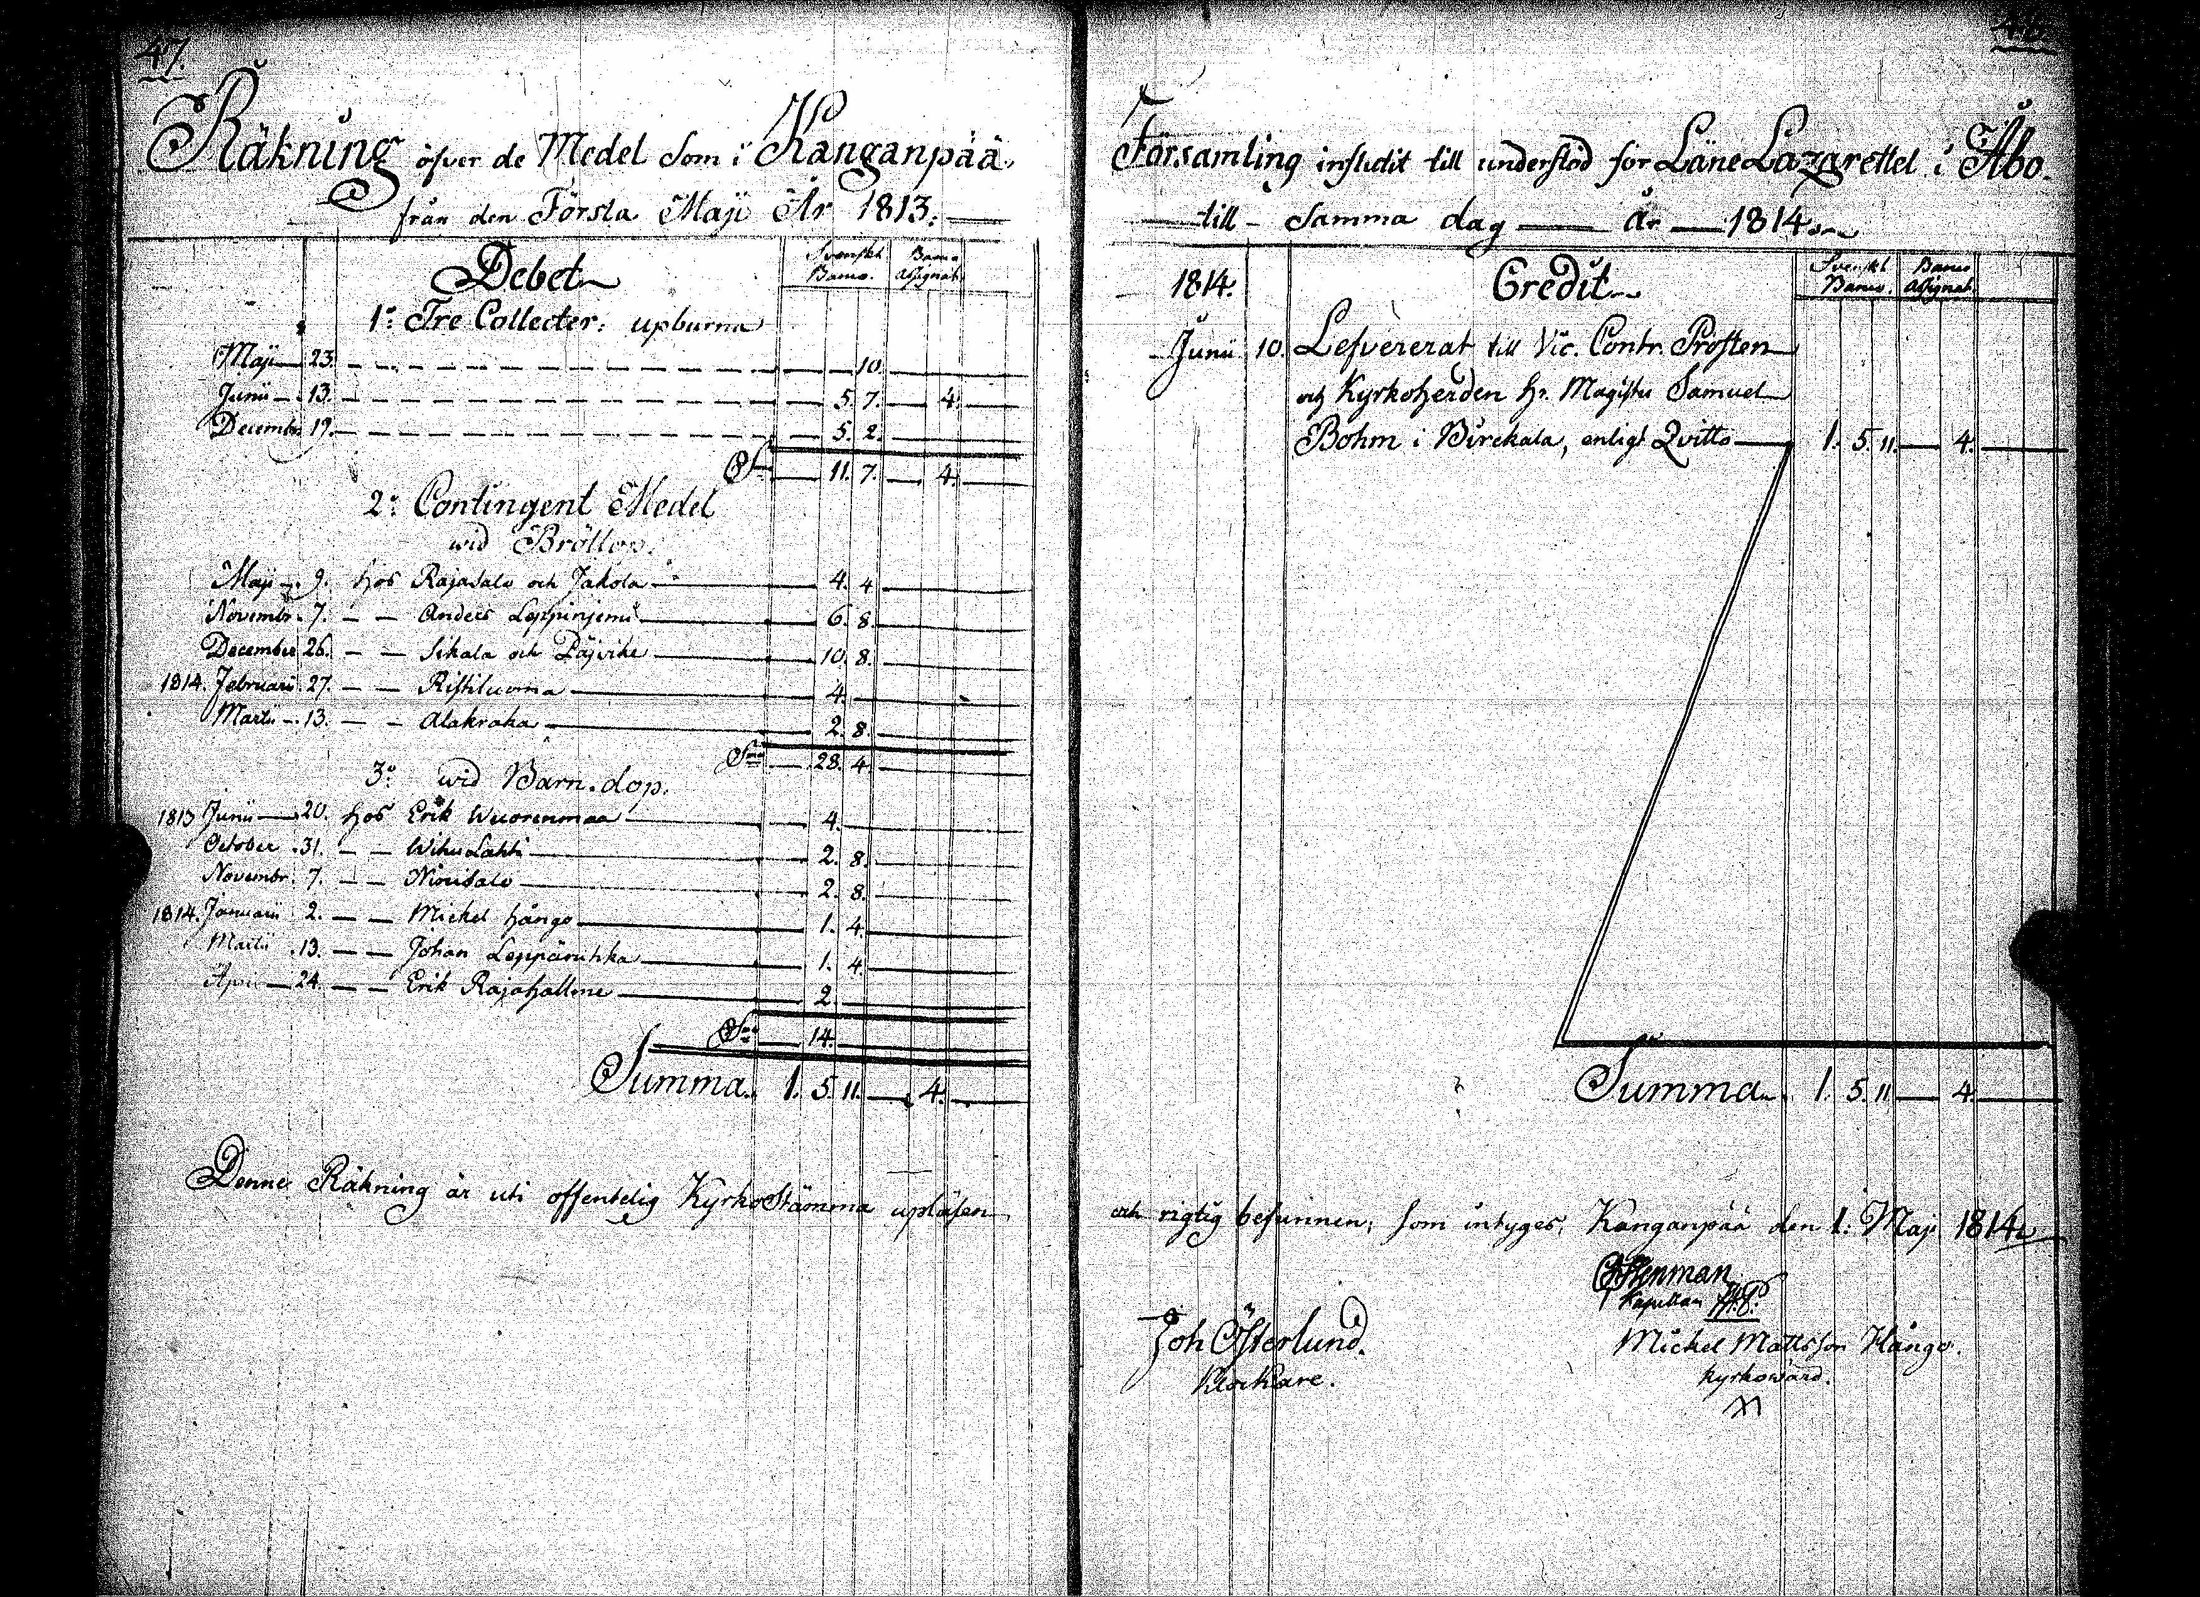 47.
Räkning öfver de Medel Som i Kanganpää
från den Första Maji År 1813.
Debet
Svenskt Banco.
Banco Assignat.
1:o Tre Collecter: upburna
Maji 23. 10.
Junii 13. 5. 7. 4.
Decembr 19. 5. 2.
S:a 11. 7. 4.
2:o Contingent Medel
wid Bröllop.
Maji 9. hos Rajasalo och Jakola 4. 4
Novembr. 7. Anders Leppinjemi 6. 8.
December 26. Sikala och Päjvike 10. 8.
1814. Februarii 27. Ristiluoma 4.
Martii 13. Alakraka 2. 8.
S:ma 28. 4.
3:o wid Barn-dop.
1813 Junii 20. hos Erik Wuorenmaa 4.
October 31. Wihu Lahti 2. 8.
Novembr. 7. Niorisalo 2. 8.
1814. Januarii 2. Michel Hångo 1. 4.
Martii 13. Johan Leppäruhka 1. 4.
April 24. Erik Rajahallme 2.
S:ma 14.
Summa. 1. 5. 11. 4.
Denne Räkning är uti offentelig KyrkoStämma upläsen
Församling influtit till understöd för Läne Lazarettet i Åbo.
till Samma dag År 1814.
1814. Credit
Svenskt Banco.
Banco Assignat.
Junii 10. Lefvererat till Vic. Contr. Prosten
och Kyrkoherden Hr. Magister Samuel
Bohm i Birckala, enligt Qvitto 1. 5. 11. 4.
Summa. 1. 5. 11 4.
och rigtig befunnen; som intyges; Kanganpää den 1: Maji 1814
Stenman
Kapellan
Joh Österlund.
Klockare.
Michel Mattsson Hångo.
Kyrkowärd.